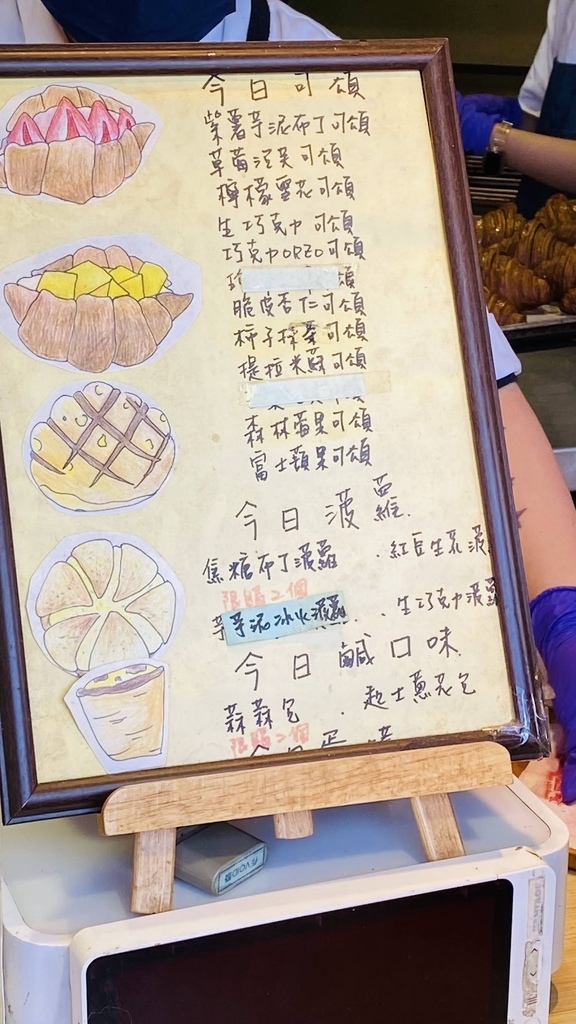 今日可頌
紫薯芋泥布丁可頌
草莓泡芙可頌
檸檬雪花可頌
生巧克力可頌
巧克力OREO可頌
頌
脆皮杏仁可頌
柿子可頌
提拉米蘇可頌
森林莓果可頌
富士蘋果可頌
今日菠蘿
焦糖布丁菠蘿 . 紅豆生花菠
限購2個
芋芋泥冰火菠蘿 . 生巧克力菠蘿
今日鹹口味
蒜蒜包 . 起士蔥花包
限購2個
今日蛋塔